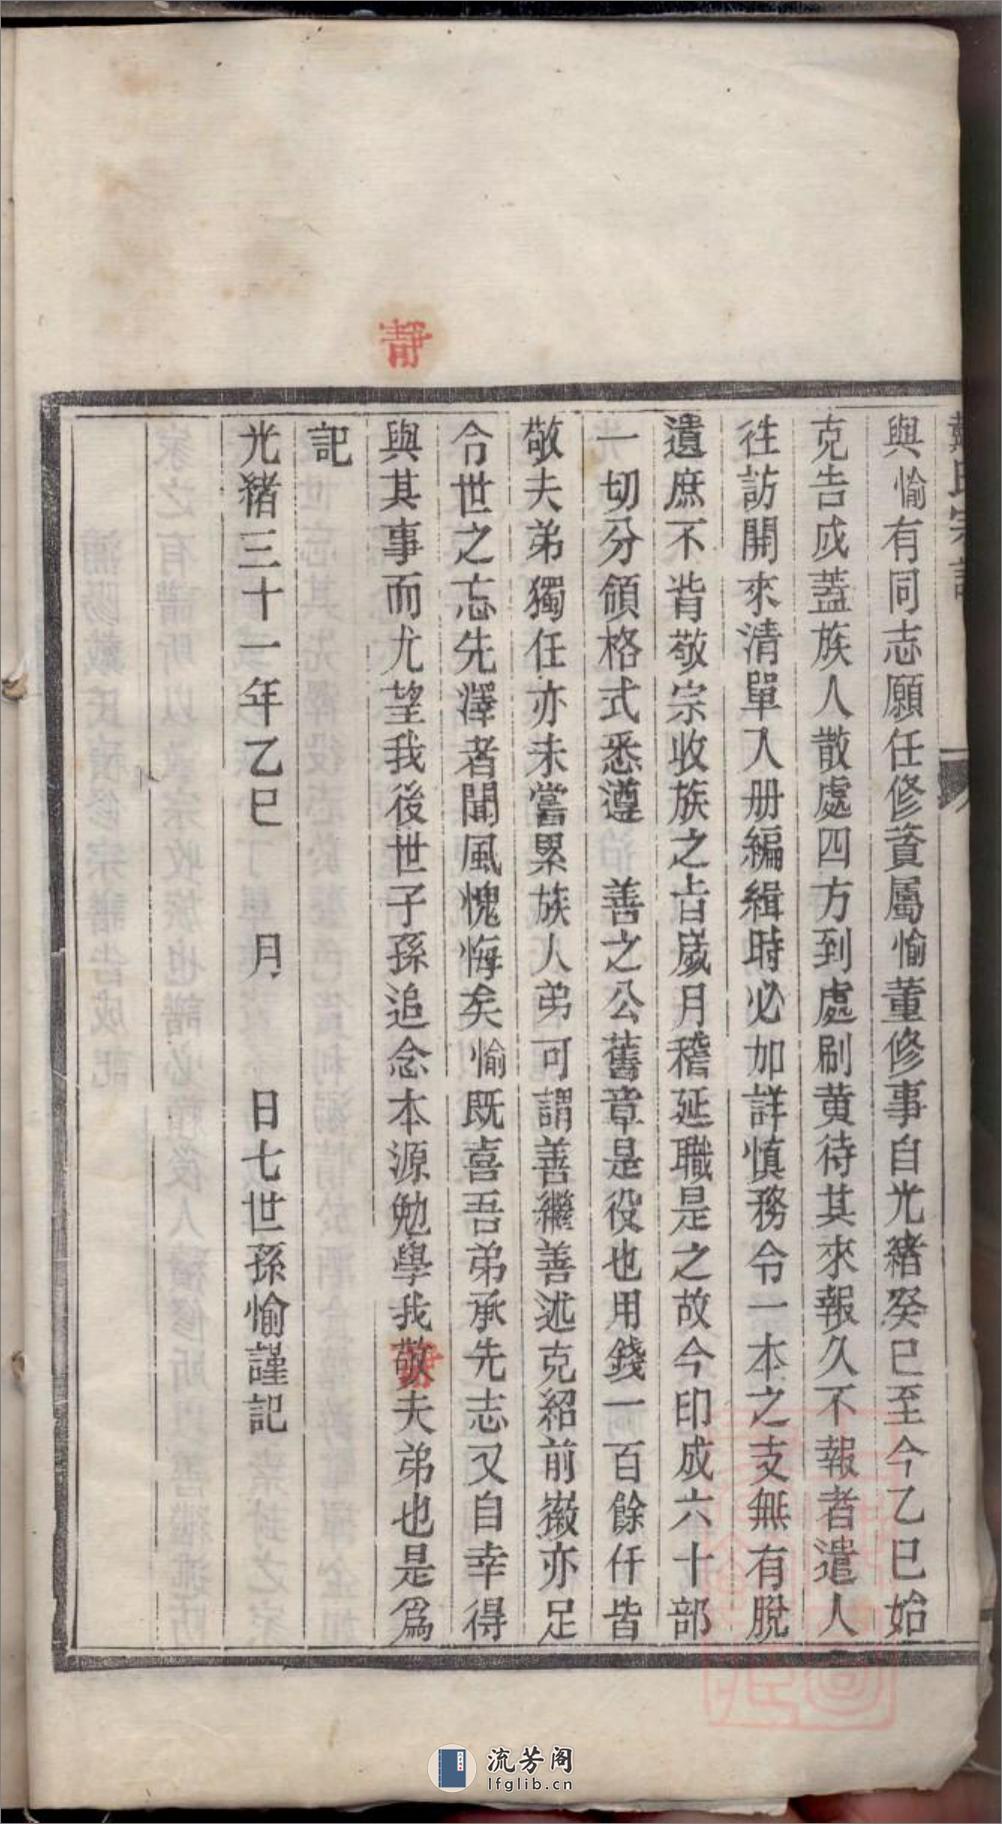 戴氏宗譜
與愉有同志願任修資屬愉董修事自光緒癸巳至今乙巳始
克告成蓋族人散處四方到處刷黄待其來報久不報者遣人
徃訪開來清單入册編緝時必加詳慎務令一本之支無有脫
遺庶不背敬宗收族之㫖嵗月稽延職是之故今印成六十部
一切分領格式悉遵　善之公舊章是役也用錢一百餘仟皆
敬夫弟獨任亦未嘗累族人弟可謂善繼善述克紹前徽亦足
令世之忘先澤者聞風愧悔矣愉既喜吾弟承先志又自幸得
與其事而尤望我後世子孫追念本源勉學我敬夫弟也是爲
記
光緒三十一年乙巳　月　日七世孫愉謹記
靜
流芳阁
lfglib.cn